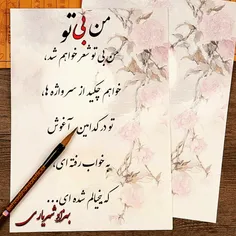 من بی تو
من بی تو شعر خواهم شد،
خواهم چکید از سر واژه ها،
تو در کدامین آغوش
به خواب رفته ای،
که خیالم شده ای...
بهزاد شهریاری